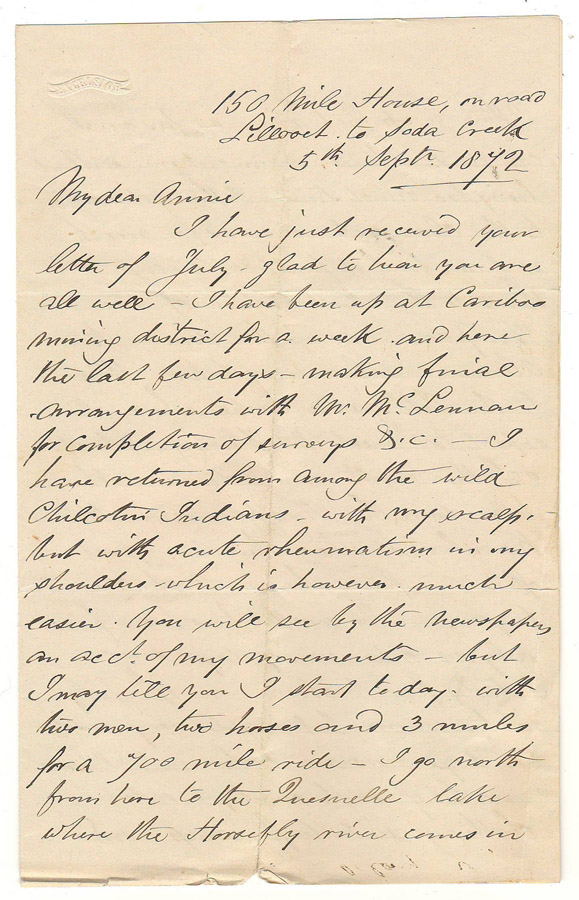 150 Mile House, on road
Lillooet to Soda Creek
5th Septr. 1872
My dear Annie
I have just received your
letter of July - glad to hear you are
all well - I have been up at Cariboo
mining district for a week and here
the last few days - making final
arrangements with Mr. McLennan
for completion of surveys &.c. - I
have returned from among the wild
Chilcotin Indians - with my scalp,
but with acute rheumatism in my
shoulders - which is however much
easier. You will see by the newspapers
an acct. of my movements - but
I may tell you I start today with
two men, two horses and 3 mules
for a 700 mile ride - I go north
from here to the Quesnelle lake
where the Horsefly river comes in